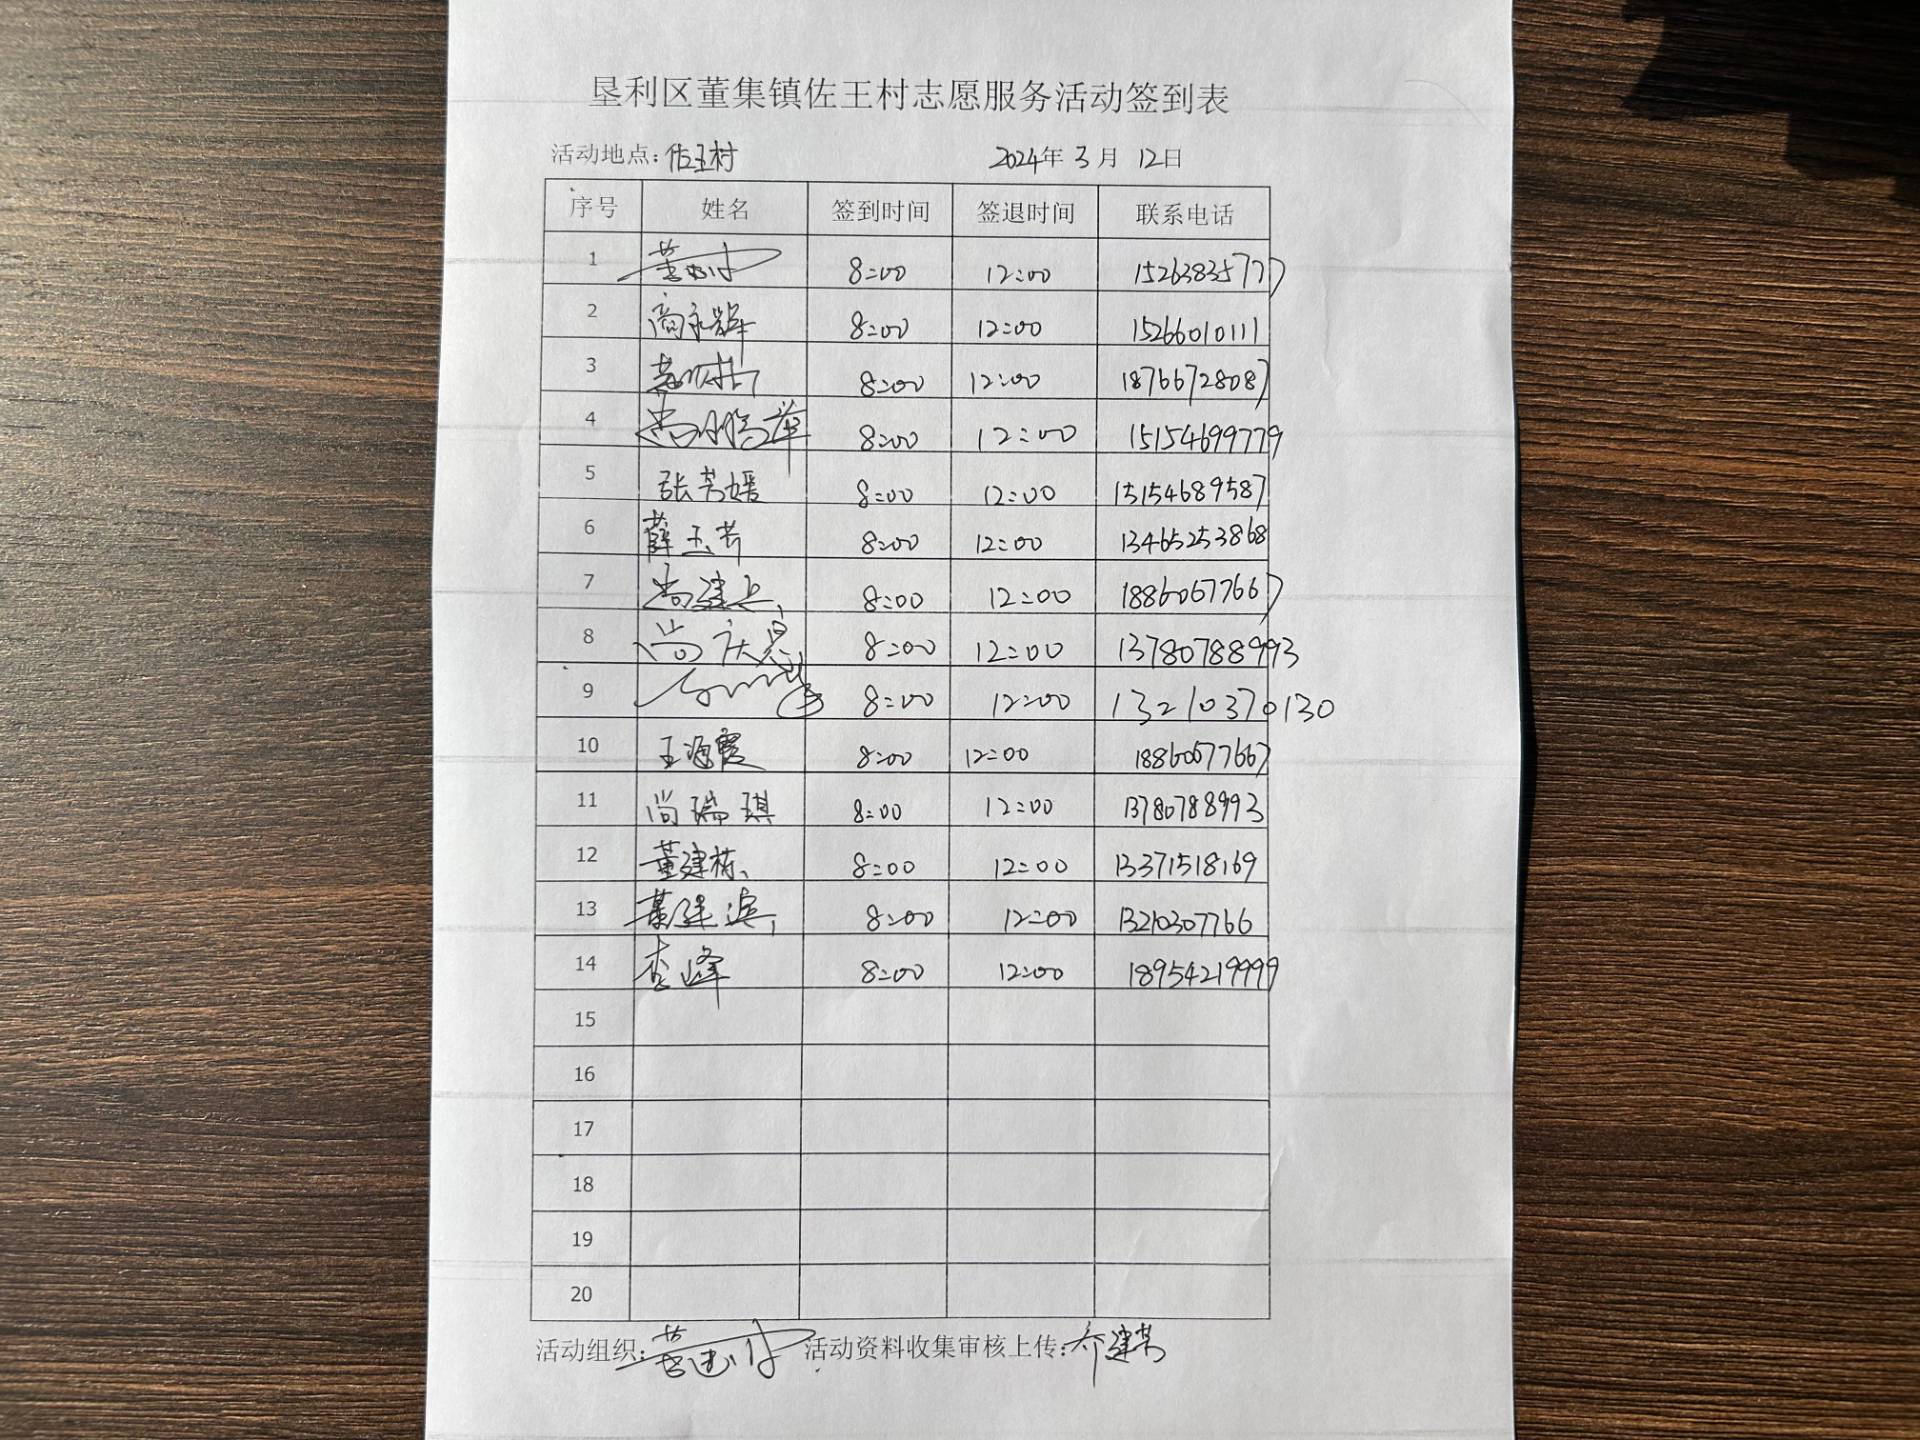 垦利区董集镇佐王村志愿服务活动签到表
活动地点：佐王村 2024年 3 月 12日
序号 姓名 签到时间 签退时间 联系电话
1 8:00 12:00 15263835777
2 商永辉 8:00 12:00 15266010111
3 8:00 12:00 18766728087
4 8:00 12:00 15154699779
5 张芳媛 8:00 12:00 15154689587
6 薛玉芳 8:00 12:00 13465253868
7 尚建 8:00 12:00 18860677667
8 尚庆 8:00 12:00 13780788993
9 8:00 12:00 13210370130
10 王海霞 8:00 12:00 18860677667
11 尚瑞琪 8:00 12:00 13780788993
12 董建栋 8:00 12:00 13371518169
13 董建滨 8:00 12:00 13210307766
14 李峰 8:00 12:00 18954219999
15
16
17
18
19
20
活动组织： 活动资料收集审核上传：